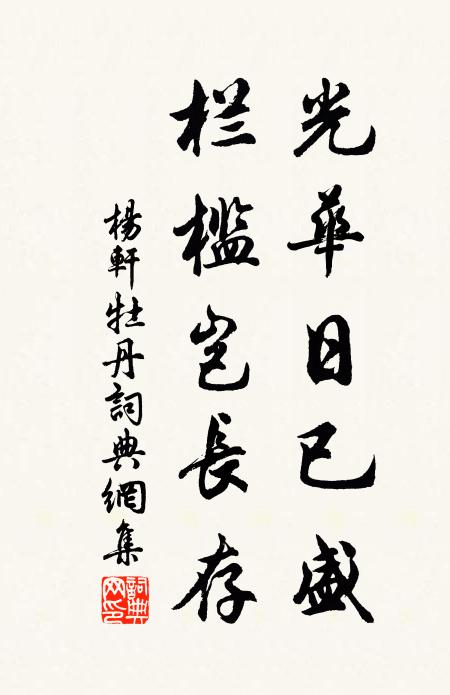 光華日已盛
栏槛岂長存
楊軒牡丹詞典網集
詞典网印